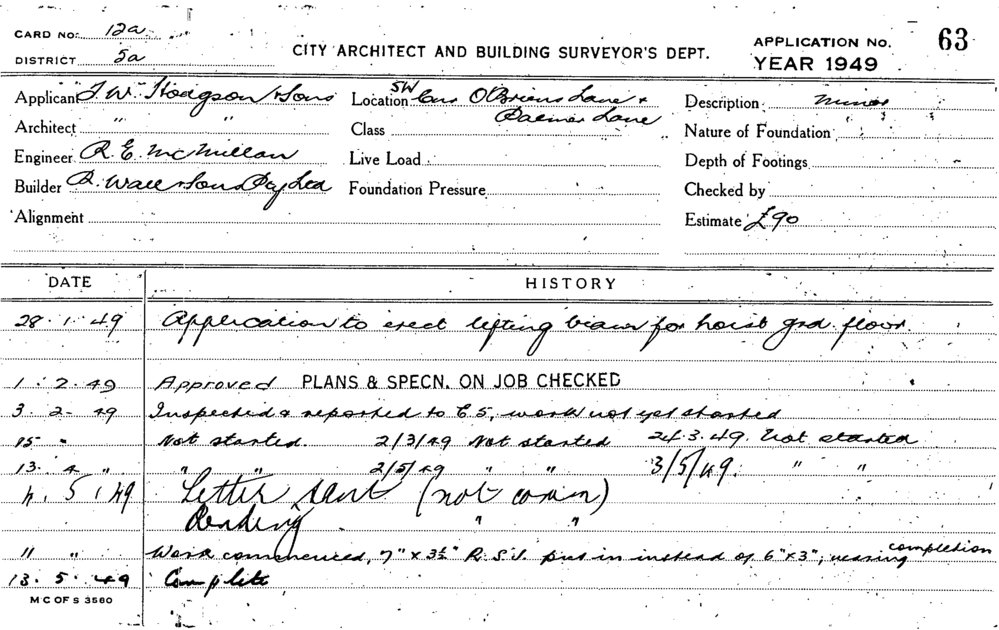 CARD NO. 12a
DISTRICT 5a
CITY ARCHITECT AND BUILDING SURVEYOR'S DEPT.
APPLICATION NO. 63
YEAR 1949
Applicant J. W. Hodgson & Sons
Architect " "
Engineer R. E. McMillan
Builder R. Wall & Sons Pty Ltd
Alignment
Location SW Cnr O'Briens Lane &
Palmer Lane
Class
Live Load
Foundation Pressure
Description minor
Nature of Foundation
Depth of Footings
Checked by
Estimate £90
DATE HISTORY
28.1.49 Application to erect lifting beam for hoist grd. floor.
1.2.49 Approved PLANS & SPECN. ON JOB CHECKED
3.2.49 Inspected & reported to E S, work not yet started
15 " Not started. 2/3/49 Not started 24.3.49. Not started
13.4 " " " 2/5/49 " " 3/5/49. " "
4.5.49 Letter sent (not comm)
Pending " "
11 " Work commenced, 7" x 3½" R.S.J. put in instead of 6" x 3", nearing completion
13.5.49 Complete
M C OF S 3560